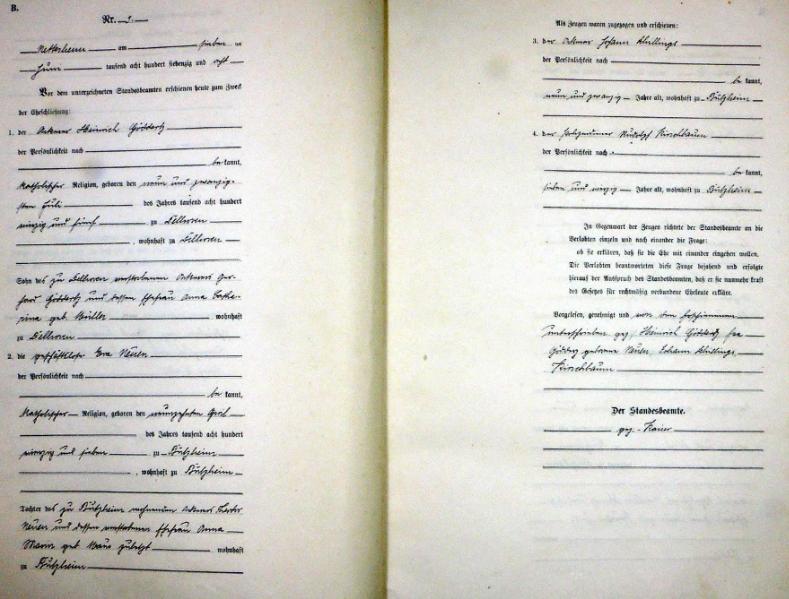 B.
Nr. 5.
Nettesheim am sieben ten
Juni tausend acht hundert siebenzig und acht
Vor dem unterzeichneten Standesbeamten erschienen heute zum Zweck
der Eheschließung:
1. der Ackerer Heinrich Göddertz
der Persönlichkeit nach
be kannt,
katholischer Religion, geboren den neun und zwanzig-
sten Juli des Jahres tausend acht hundert
vierzig und fünf zu Delhoven
, wohnhaft zu Delhoven
Sohn des zu Delhoven verstorbenen Ackerers Ger-
hard Göddertz und dessen Ehefrau Anna Catha-
rina geb Müller wohnhaft
zu Delhoven
2. die geschäftslose Eva Neusen
der Persönlichkeit nach
be kannt,
katholischer Religion, geboren den neunzehnten April
des Jahres tausend acht hundert
vierzig und sieben zu Bützheim
, wohnhaft zu Bützheim
Tochter des zu Bützheim wohnenden Ackerers
Neusen und dessen verstorbenen Ehefrau Anna
Maria geb zuletzt wohnhaft
zu Bützheim
Als Zeugen waren zugezogen und erschienen:
3. der Ackerer Johann
der Persönlichkeit nach
be kannt,
neun und zwanzig Jahre alt, wohnhaft zu Bützheim
4. der Kirschbaum
der Persönlichkeit nach
be kannt,
sieben und vierzig Jahre alt, wohnhaft zu Bützheim
In Gegenwart der Zeugen richtete der Standesbeamte an die
Verlobten einzeln und nach einander die Frage:
ob sie erklären, daß sie die Ehe mit einander eingehen wollen.
Die Verlobten beantworteten diese Frage bejahend und erfolgte
hierauf der Ausspruch des Standesbeamten, daß er sie nunmehr kraft
des Gesetzes für rechtmäßig verbundene Eheleute erkläre.
Vorgelesen, genehmigt und von den Erschienenen
unterschrieben gez. Heinrich Göddertz Eva
Göddertz geborene Neusen Johann
Kirschbaum
Der Standesbeamte.
gez.